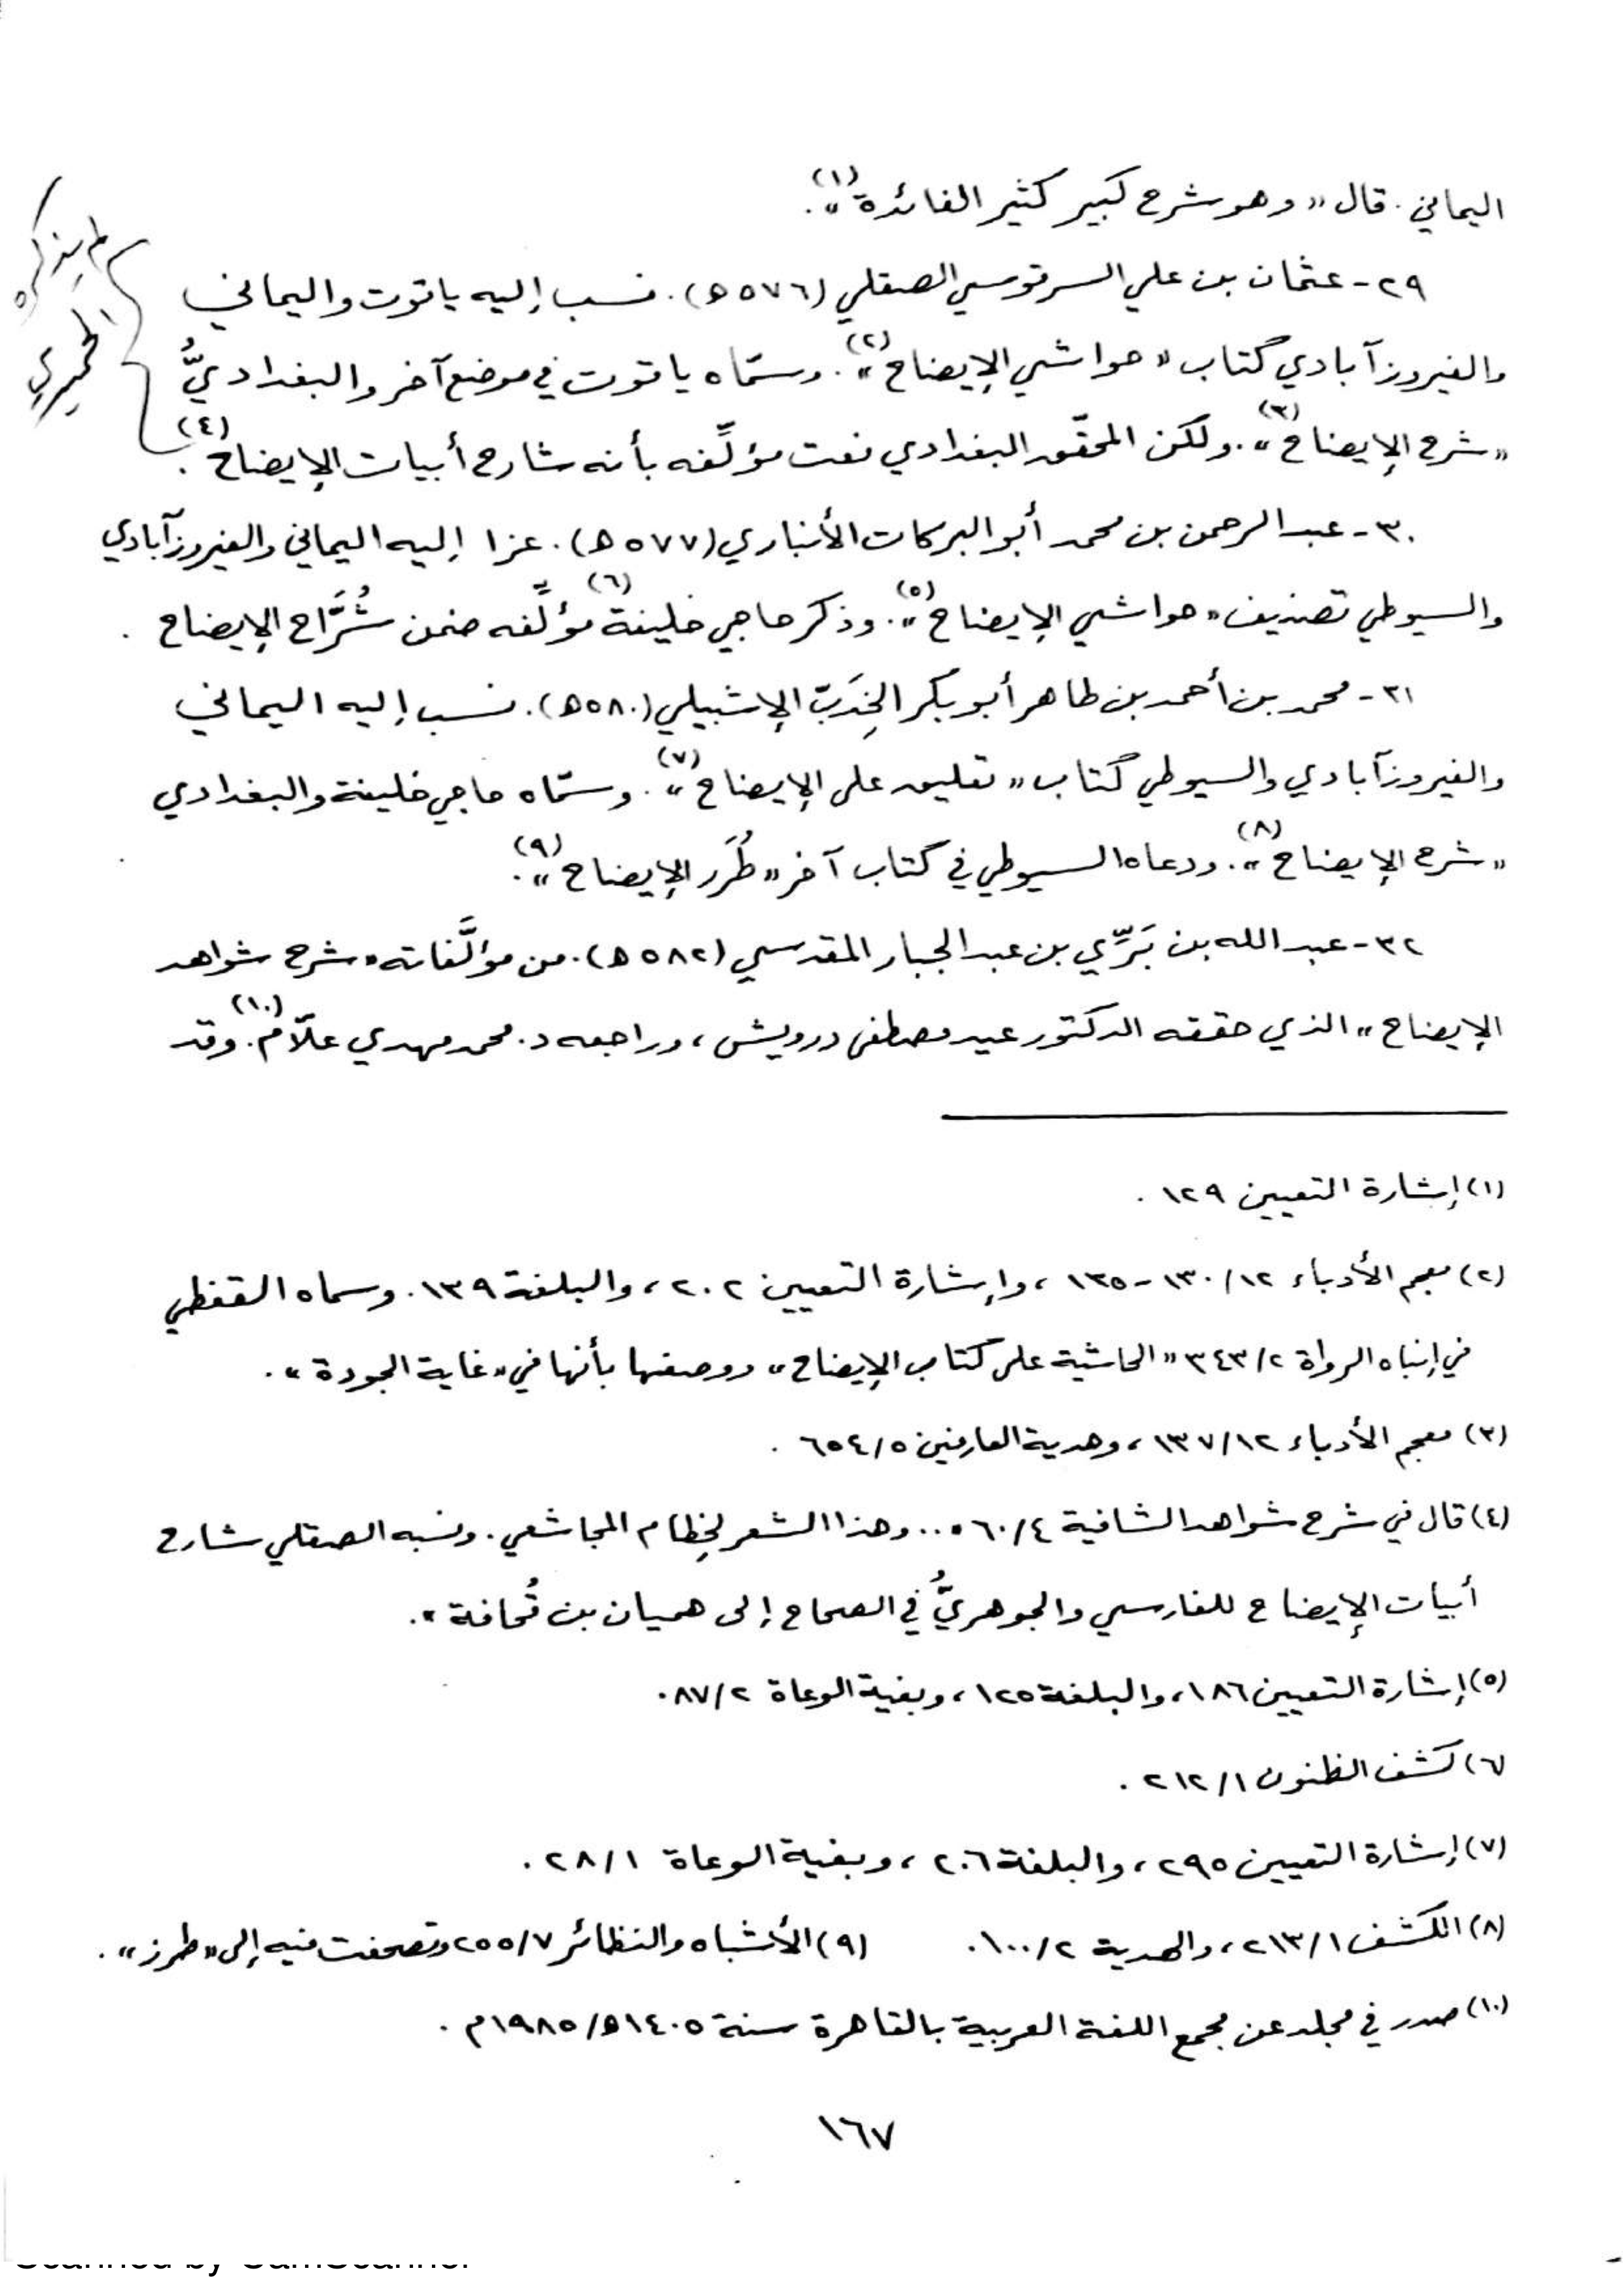 اليماني. قال «وهو شرح كبير كثير الفائدة»(١).
٢٩- عثمان بن علي السرقوسي الصقلي (٥٧٦ه). نسب إليه ياقوت واليماني
والفيروزآبادي كتاب «حواشي الإيضاح»(٢). وسمّاه ياقوت في موضع آخر والبغداديُّ
«شرح الإيضاح»(٣). ولكن المحقّق البغدادي نعت مؤلِّفه بأنه شارح أبيات الإيضاح(٤).
لم يذكره
الحميري
٣٠- عبد الرحمن بن محمد أبو البركات الأنباري (٥٧٧ه). عزا إليه اليماني والفيروزآبادي
والسيوطي تصنيف «حواشي الإيضاح»(٥). وذكر حاجي خليفة(٦) مؤلِّفه ضمن شُرَّاح الإيضاح.
٣١- محمد بن أحمد بن طاهر أبو بكر الخِدَبّ الإشبيلي (٥٨٠ه). نسب إليه اليماني
والفيروزآبادي والسيوطي كتاب «تعليق على الإيضاح»(٧). وسمّاه حاجي خليفة والبغدادي
«شرح الإيضاح»(٨). ودعاه السيوطي في كتاب آخر «طُرَر الإيضاح»(٩).
٣٢- عبد الله بن بَرِّي بن عبد الجبار المقدسي (٥٨٢ه). من مؤلَّفاته «شرح شواهد
الإيضاح» الذي حققه الدكتور عيد مصطفى درويش، وراجعه د. محمد مهدي علّام(١٠). وقد
(١) إشارة التعيين ١٢٩.
(٢) معجم الأدباء ١٣٠/١٢-١٣٥، وإشارة التعيين ٢٠٢، والبلغة ١٣٩. وسماه القفطي
في إنباه الرواة ٣٤٣/٢ «الحاشية على كتاب الإيضاح» ووصفها بأنها في «غاية الجودة».
(٣) معجم الأدباء ١٣٧/١٢، وهدية العارفين ٦٥٤/٥.
(٤) قال في شرح شواهد الشافية ٦٠/٤ «.. وهذا الشعر لخِطام المجاشعي. ونسبه الصقلي شارح
أبيات الإيضاح للفارسي والجوهريُّ في الصحاح إلى هميان بن قُحافة».
(٥) إشارة التعيين ١٨٦، والبلغة ١٢٥، وبغية الوعاة ٨٧/٢.
(٦) كشف الظنون ٢١٢/١.
(٧) إشارة التعيين ٢٩٥، والبلغة ٢٠٦، وبغية الوعاة ٢٨/١.
(٨) الكشف ٢١٣/١، والهدية ١٠٠/٢. (٩) الأشباه والنظائر ٢٥٥/٧ وتصحفت فيه إلى «طرز».
(١٠) صدر في مجلد عن مجمع اللغة العربية بالقاهرة سنة ١٤٠٥ه/١٩٨٥م.
١٦٧
Scanned by CamScanner